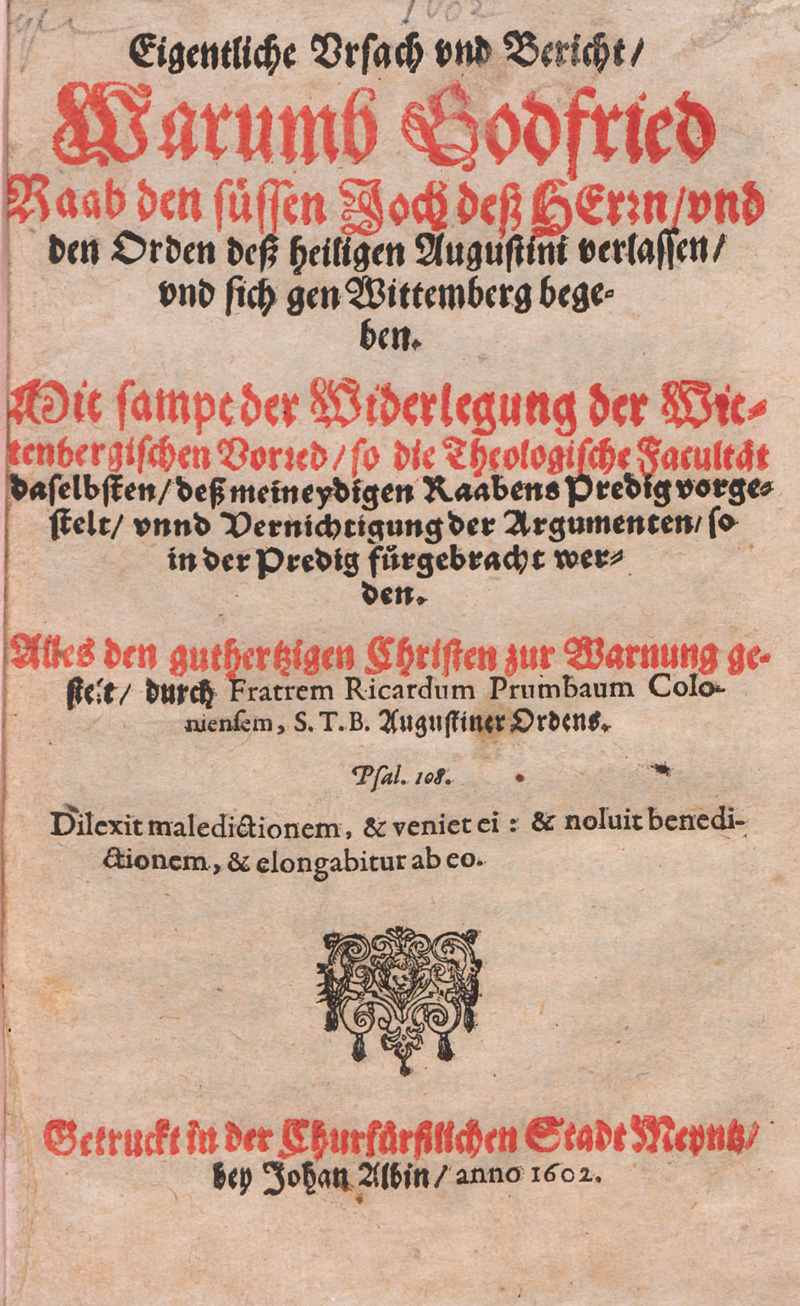 1602
Eigentliche Vrsach vnd Bericht/
Warumb Godfried
Raab den süssen Joch deß HErrn/vnd
den Orden deß heiligen Augustini verlassen/
vnd sich gen Wittemberg bege-
ben.
Mit sampt der Widerlegung der Wit-
tenbergischen Vorred/so die Theologische Facultät
daselbsten/deß meineydigen Raabens Predig vorge-
stelt/ vnnd Vernichtigung der Argumenten/ so
in der Predig fürgebracht wer-
den.
Alles den guthertzigen Christen zur Warnung ge-
stelt/ durch Fratrem Ricardum Prumbaum Colo-
niensem, S. T. B. Augustiner Ordens.
Psal. 108.
Dilexit maledictionem, & veniet ei : & noluit benedi-
ctionem, & elongabitur ab eo.
Getruckt in der Churfürstlichen Stadt Meyntz/
bey Johan Albin/ anno 1602.